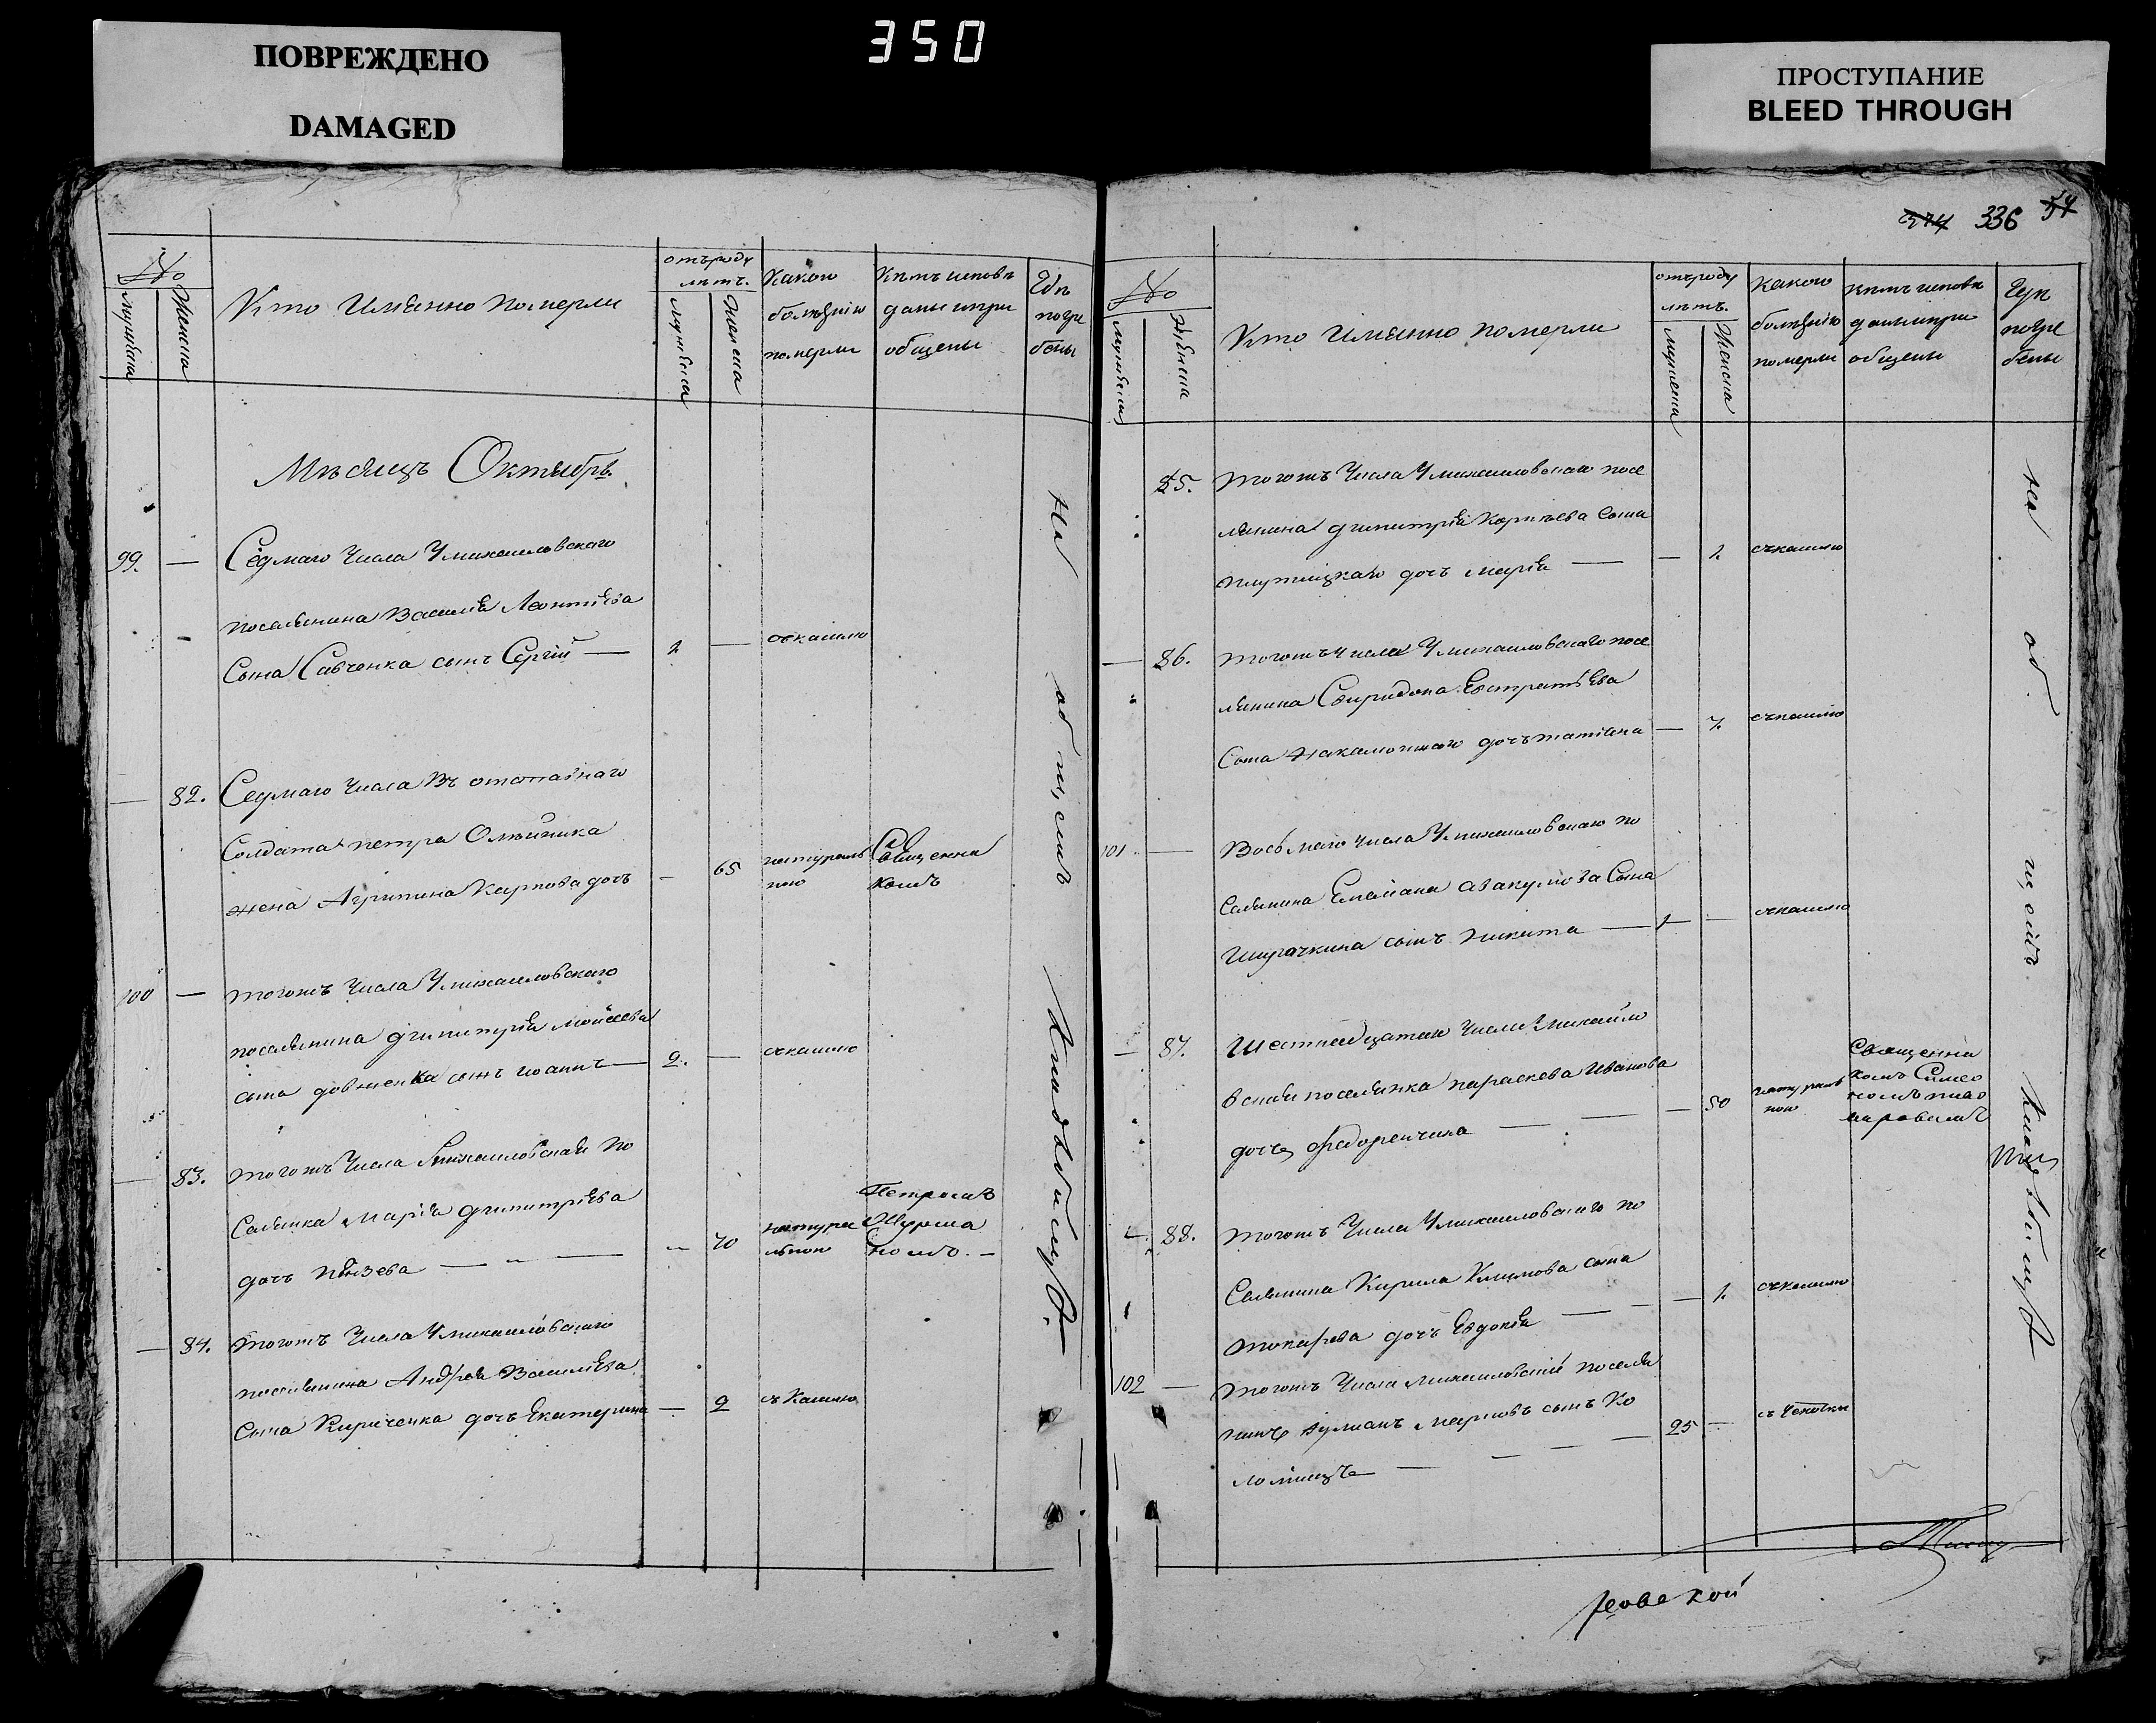 ПОВРЕЖДЕНО
DAMAGED
350
ПРОСТУПАНИЕ
BLEED THROUGH
№
Мужеска
Женска
Кто Имянно померли
отъ роду
лѣтъ.
Мужеска
Женска
Какою
болезнію
померли
Кѣмъ исповѣ
даны и при
общены
Гдѣ
погре
бены
Мѣсяцъ Октябрь
99. —
Седмаго Числа У михаиловскаго
поселянина Василія Леонтіева
Сына Савченка сынъ Сергій — 1 — отъ кашлю
— 82.
Седмаго Числа Въ отставнаго
Солдата петра Олѣйника
жена Агрипина Карпова дочь — 65 натураль
ною
Священни
комъ
100 —
тогожъ Числа У михаиловскаго
поселянина димитрія Мойсеева
сына довженка сынъ иоаннъ — 2. — отъ кашлю
— 83.
тогожъ Числа михаиловская по
Селянка Марія димитріева
дочь — 70 натура
льною
Петромъ
84.
тогожъ Числа У михаиловскаго
поселянина Андрея Василіева
Сына Кириченка дочь Екатерина — 2 съ Кашлю
На об пу, емъ Кладбищѣ.
374 336 54
№
Мужеска
Женска
Кто Имянно померли
отъ роду
лѣтъ.
Мужеска
Женска
Какою
болезнію
померли
кѣмъ исповѣ
даны и при
общены
Гдѣ
погре
бены
85.
тогожъ Числа У михаиловскаго посе
лянина димитрія Корнѣева Сына
дочь марія — — 1. отъ кашлю
— 86.
тогожъ Числа У михаиловскаго посе
лянина Свиридона Евстратіева
Сына дочь татіана — 1. отъ кашлю
101 —
Восьмаго числа У михаиловскаго по
Селянина Емелиана Авакумова Сына
сынъ Никита — 1 — отъ кашлю
— 87.
Шестнадцатаго Числа михайло
вская поселянка параскева Иванова
дочь Федоренчина — — 50 натураль
ною
Священни
комъ Симео
номъ
— 88.
тогожъ Числа У михаиловскаго по
Селянина Кирила Климова сына
токарева дочь Евдокія — 1. отъ кашлю
102 —
тогожъ Числа Михаиловский поселя
нинъ Марковъ сынъ Ко
ломіецъ — 25 — съ Чахотки
На об. щ, емъ Кладбищѣ